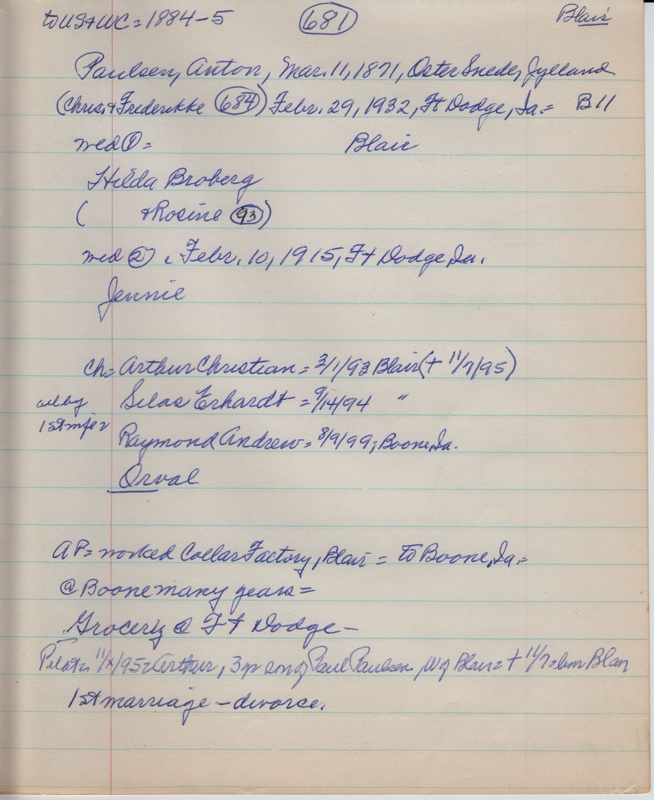 to US & WC = 1884-5 681 Blair
Paulsen, Anton, Mar. 11, 1871, Oster Snede, Jylland
(Chris. & Frederikke 684) Febr. 29, 1932, Ft Dodge, Ia. = B11
med ① = Blair
Hilda Broberg
( & Rosine 93)
med ② , Febr. 10, 1915, Ft Dodge, Ia.
Jennie
Ch = Arthur Christian = 2/1/93 Blair (+ 11/7/95)
Silas Erhardt = 9/14/94 "
all by
1st
Raymond Andrew = 8/9/99; Boone, Ia.
Orval
AP = worked Collar Factory, Blair = to Boone, Ia. =
@ Boone many years =
Grocery @ Ft Dodge -
Pilot = /95 = Arthur, 3 son of Paul Paulsen, W of Blair = + 11/7 = Blair
1st marriage - divorce.